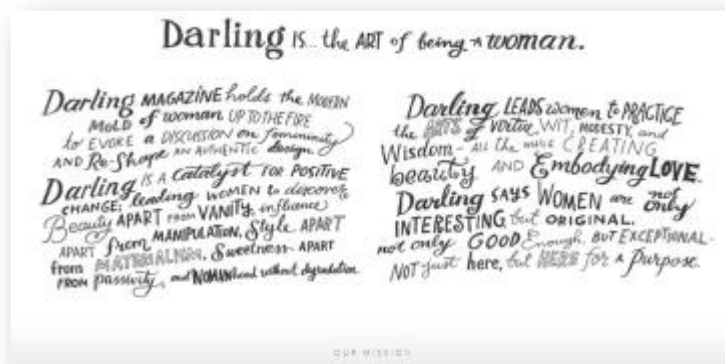 Darling IS... the ART of being a woman.
Darling MAGAZINE holds the MODERN
MOLD of woman UP TO THE FIRE
to EVOKE a DISCUSSION on femininity
AND Re-Shape AN AUTHENTIC design.
Darling IS A Catalyst FOR POSITIVE
CHANGE; leading WOMEN to discover
Beauty APART FROM VANITY, influence
APART from MANIPULATION, Style APART
from MATERIALISM, Sweetness APART
FROM passivity, and WOMANhood without degradation
Darling LEADS women to PRACTICE
the ARTS of Virtue, WIT, MODESTY, and
Wisdom - ALL the while CREATING
beauty AND Embodying LOVE.
Darling SAYS WOMEN are not only
INTERESTING but ORIGINAL.
not only GOOD Enough, BUT EXCEPTIONAL -
NOT just here, but HERE for A Purpose.
OUR MISSION